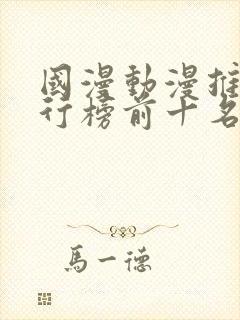 國漫動漫推
行榜前十名
馬一德